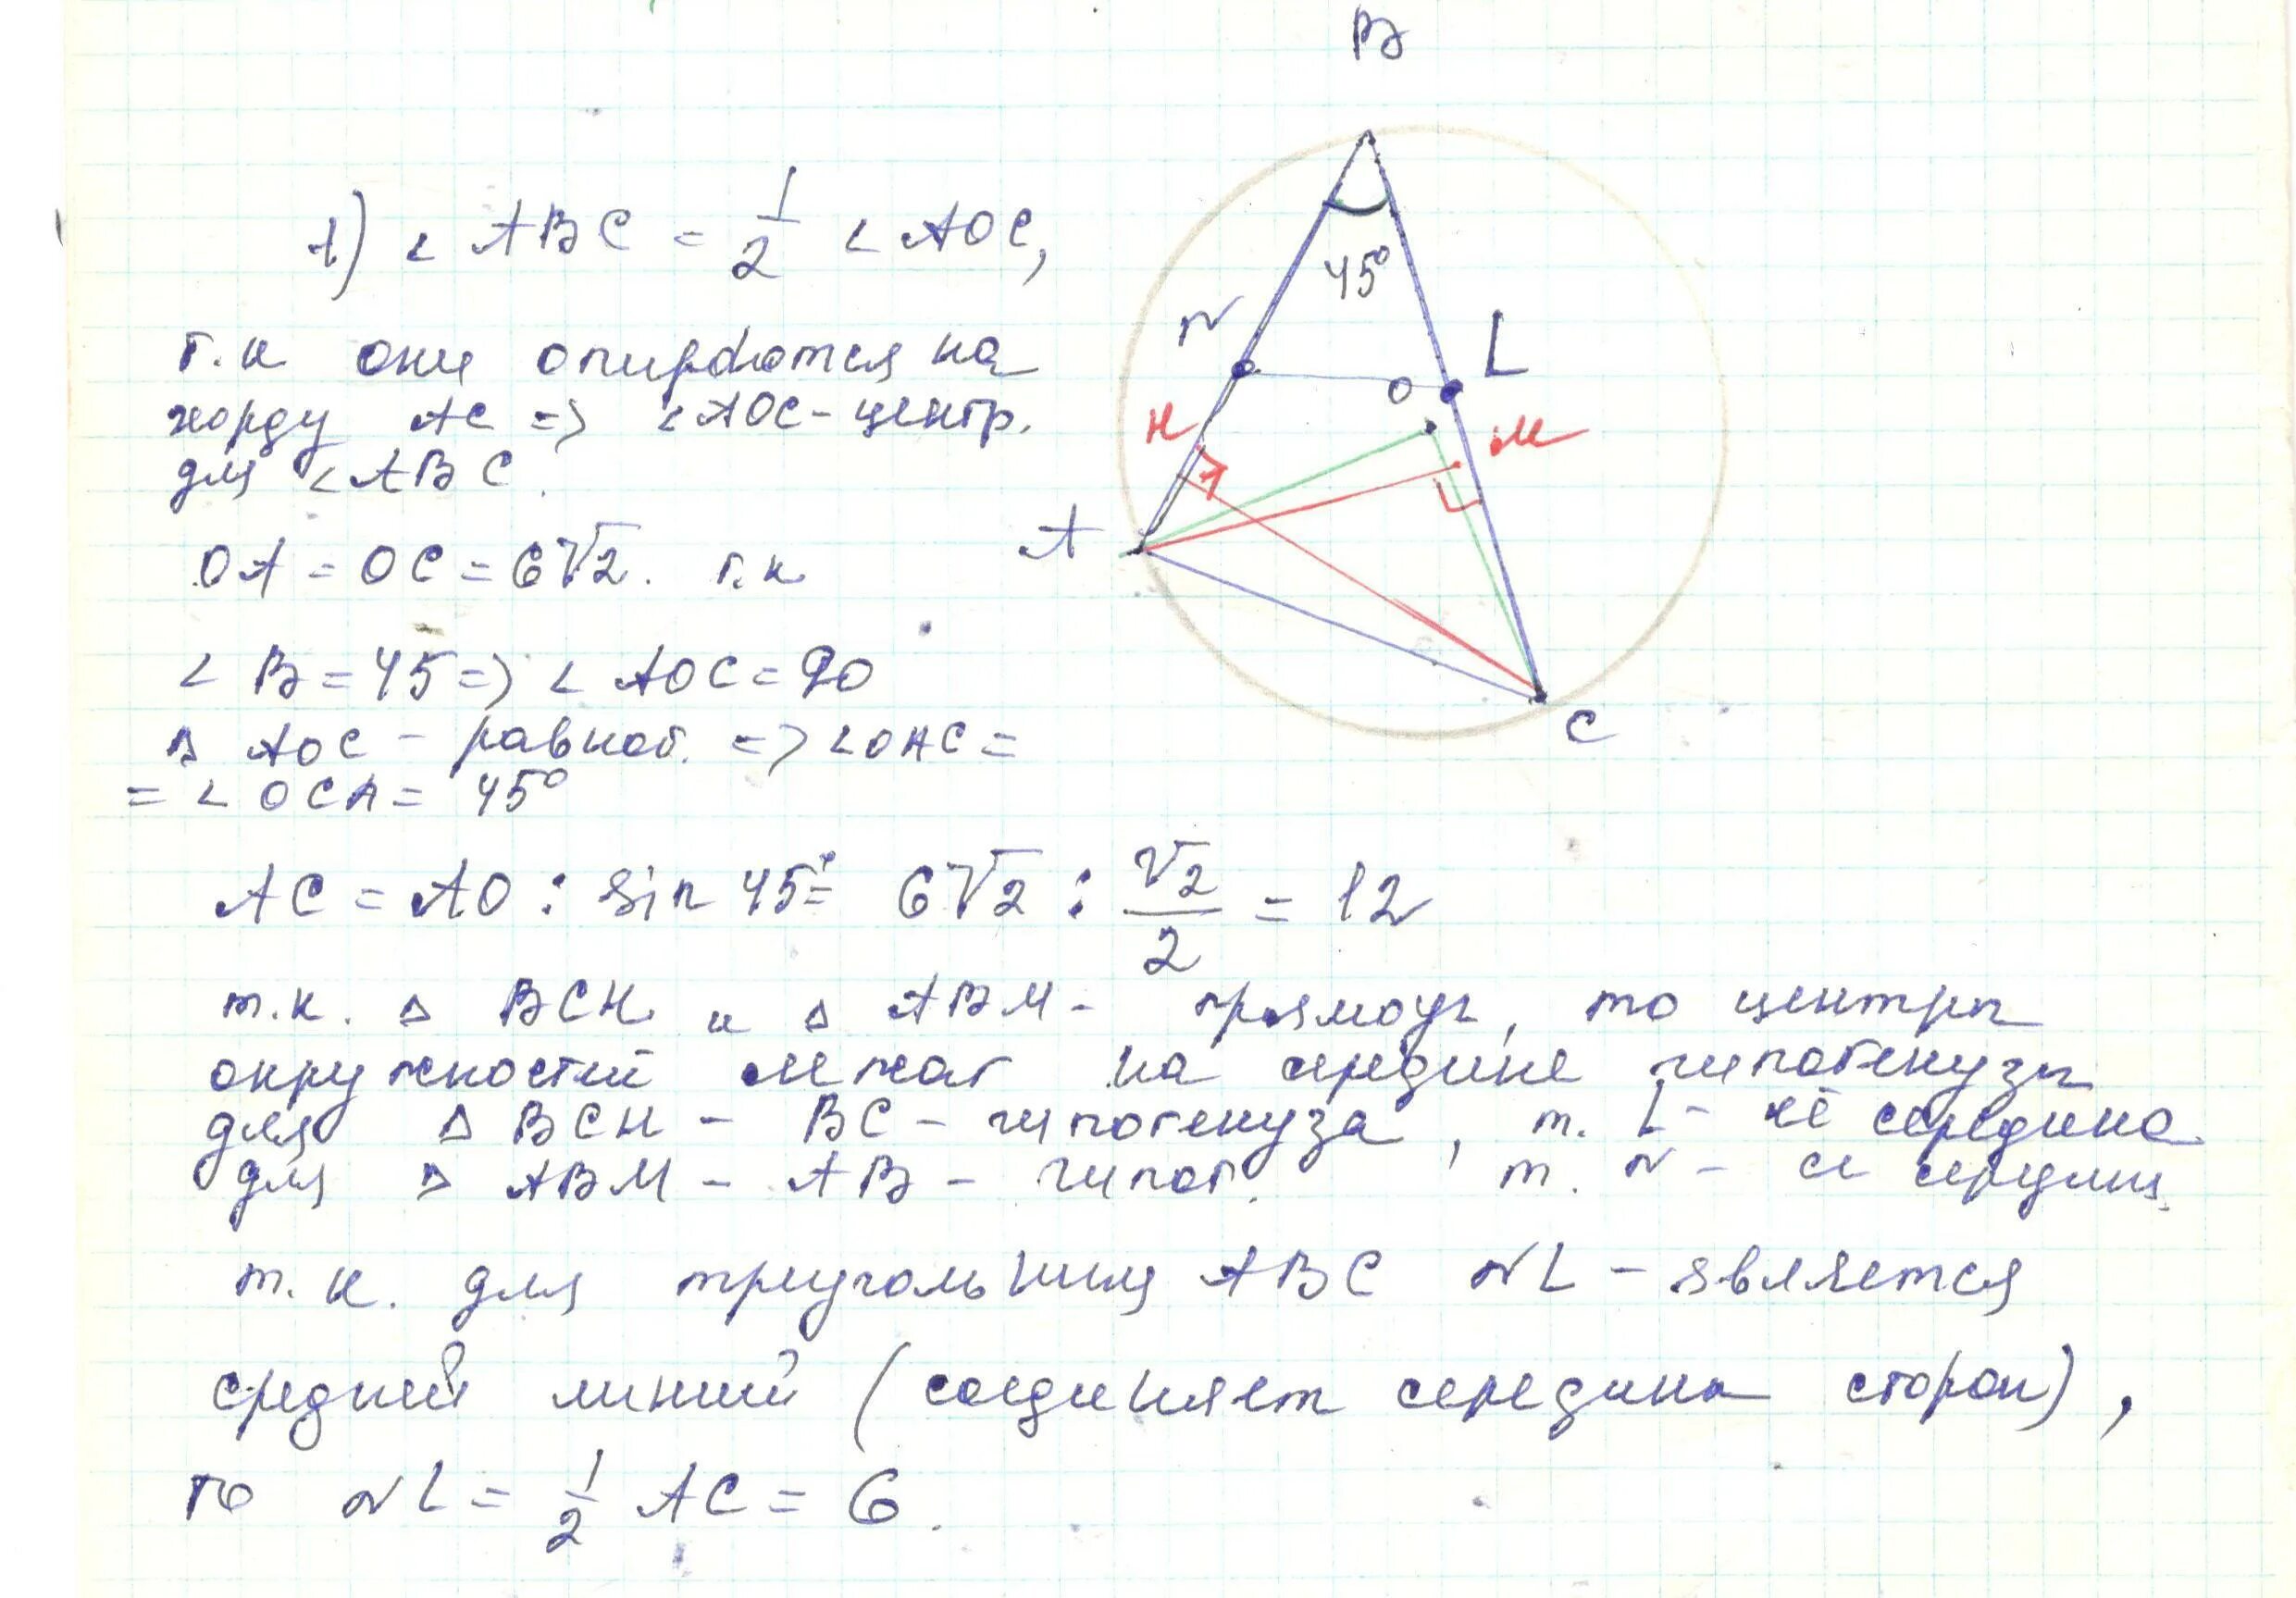 B
1) ∠ ABC = 1/2 ∠ AOC,
т.к они опираются на
хорду AC => ∠AOC - центр.
для ∠ABC.
OA = OC = 6√2. т.к
∠ B = 45 => ∠ AOC = 90
Δ AOC - равноб. => ∠OAC =
= ∠ OCA = 45°
45°
N
L
O
H
M
A
C
AC = AO : sin 45° = 6√2 : √2/2 = 12
т.к. Δ BCH и Δ ABM - прямоуг, то центры
окружностей лежат на середине гипотенузы
для Δ BCH - BC - гипотенуза, т. L - её середина
для Δ ABM - AB - гипот. т. N - её середина
т.к. для треугольника ABC NL - является
средней линией (соединяет середины сторон),
то NL = 1/2 AC = 6.